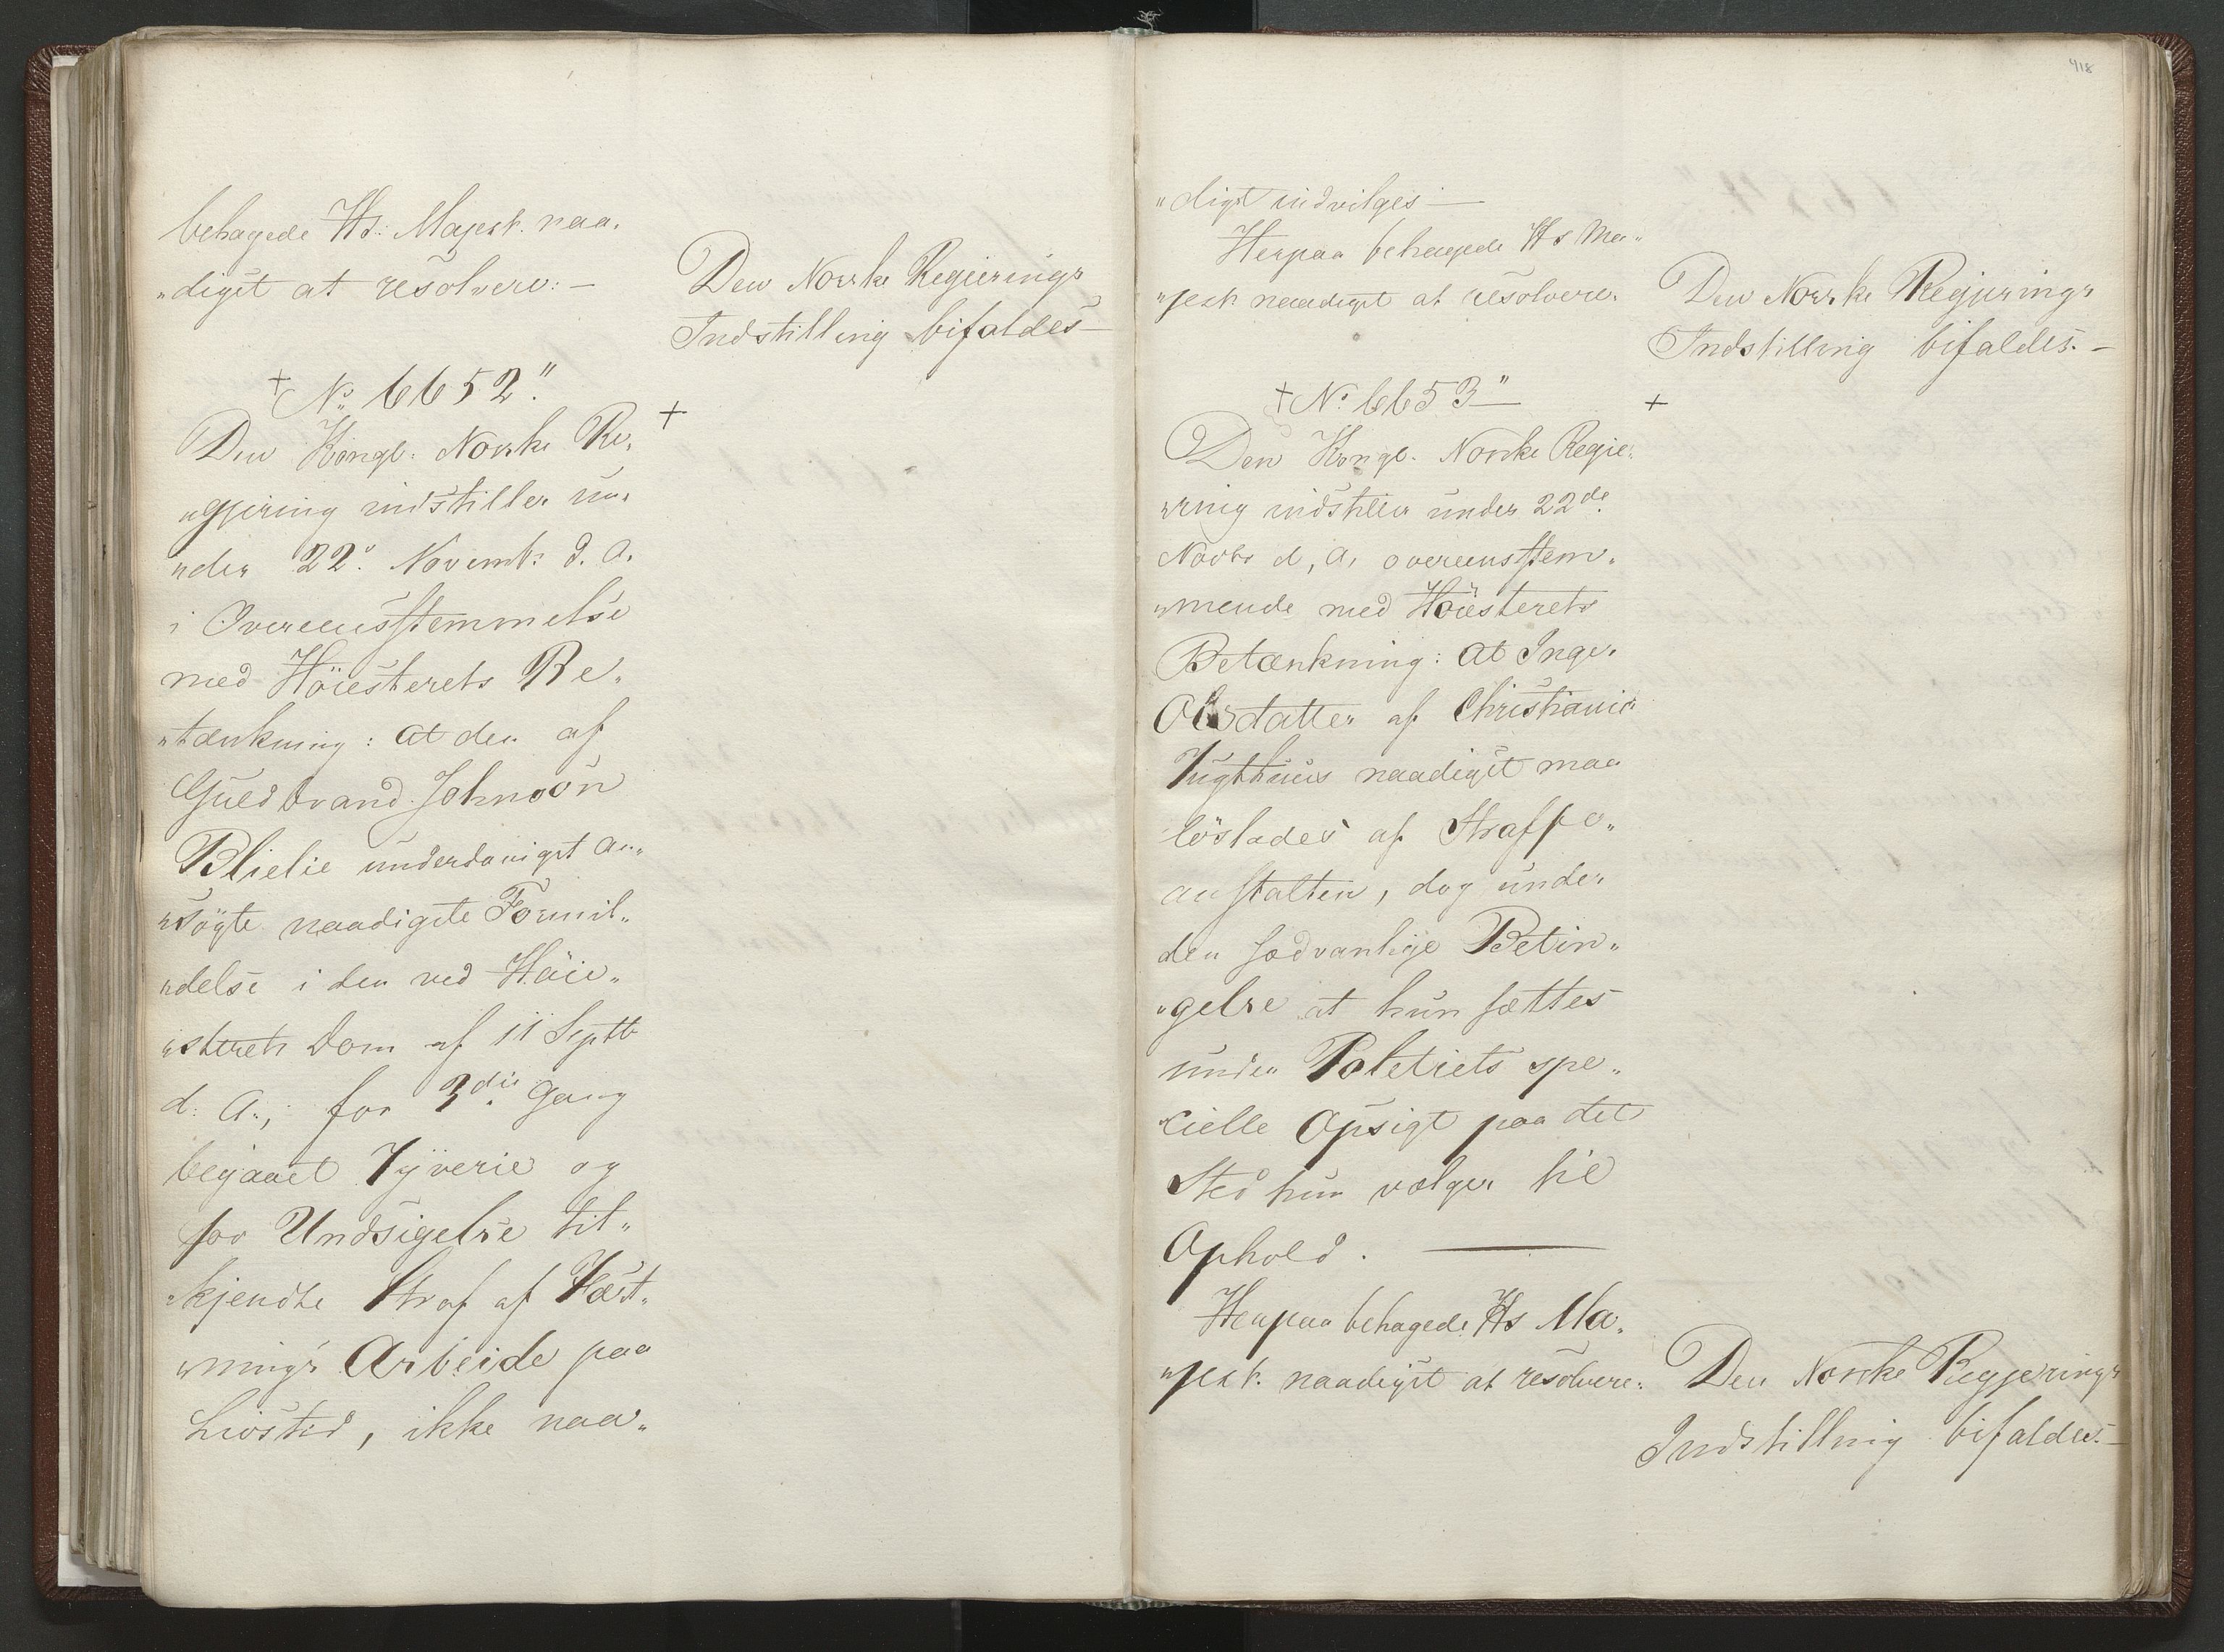 behagede Hs. Majest. naa„
„digst at resolvere: —
Den Norske Regjerings
Indstilling bifaldes —
+ No 6652."
+
Den Kongl. Norske Re„
„gjering indstiller un„
„der 22de Novemb: d. A.
i Overeensstemmelse
med Höiesterets Be„
„tænkning: at den af
Guldbrand Johnson
Blielie underdanigst an„
„søgte naadigste Formil„
„delse i den ved Höie„
„sterets Dom af 11 Septb
d: A:, for 3die Gang
begaaet Tyverie og
for Undsigelse til„
„kjendte Straf af Fæst„
„nings Arbeide paa
Livstid, ikke naa„
418
„digst indvilges —
Herpaa behagede Hs Ma„
„jest. naadigst at resolvere.
Den Norske Regjerings
Indstilling bifaldes. —
+ No 6653" —
+
Den Kongl. Norske Regje„
„ring indstiller under 22de
Novbr d, A, overeensstem„
„mende med Höiesterets
Betænkning: at Inge„
Olsdatter af Christiania
Tugthuus naadigst maa
löslades af Straffe„
anstalten, dog under
den sædvanlige Betin„
„gelse at hun sættes
under Poletiets spe„
„cielle Opsigt paa det
Sted hun vælger til
Ophold. —
Herpaa behagede Hs Ma„
„jest. naadigst at resolvere:
Den Norske Regjerings
Indstilling bifaldes. —